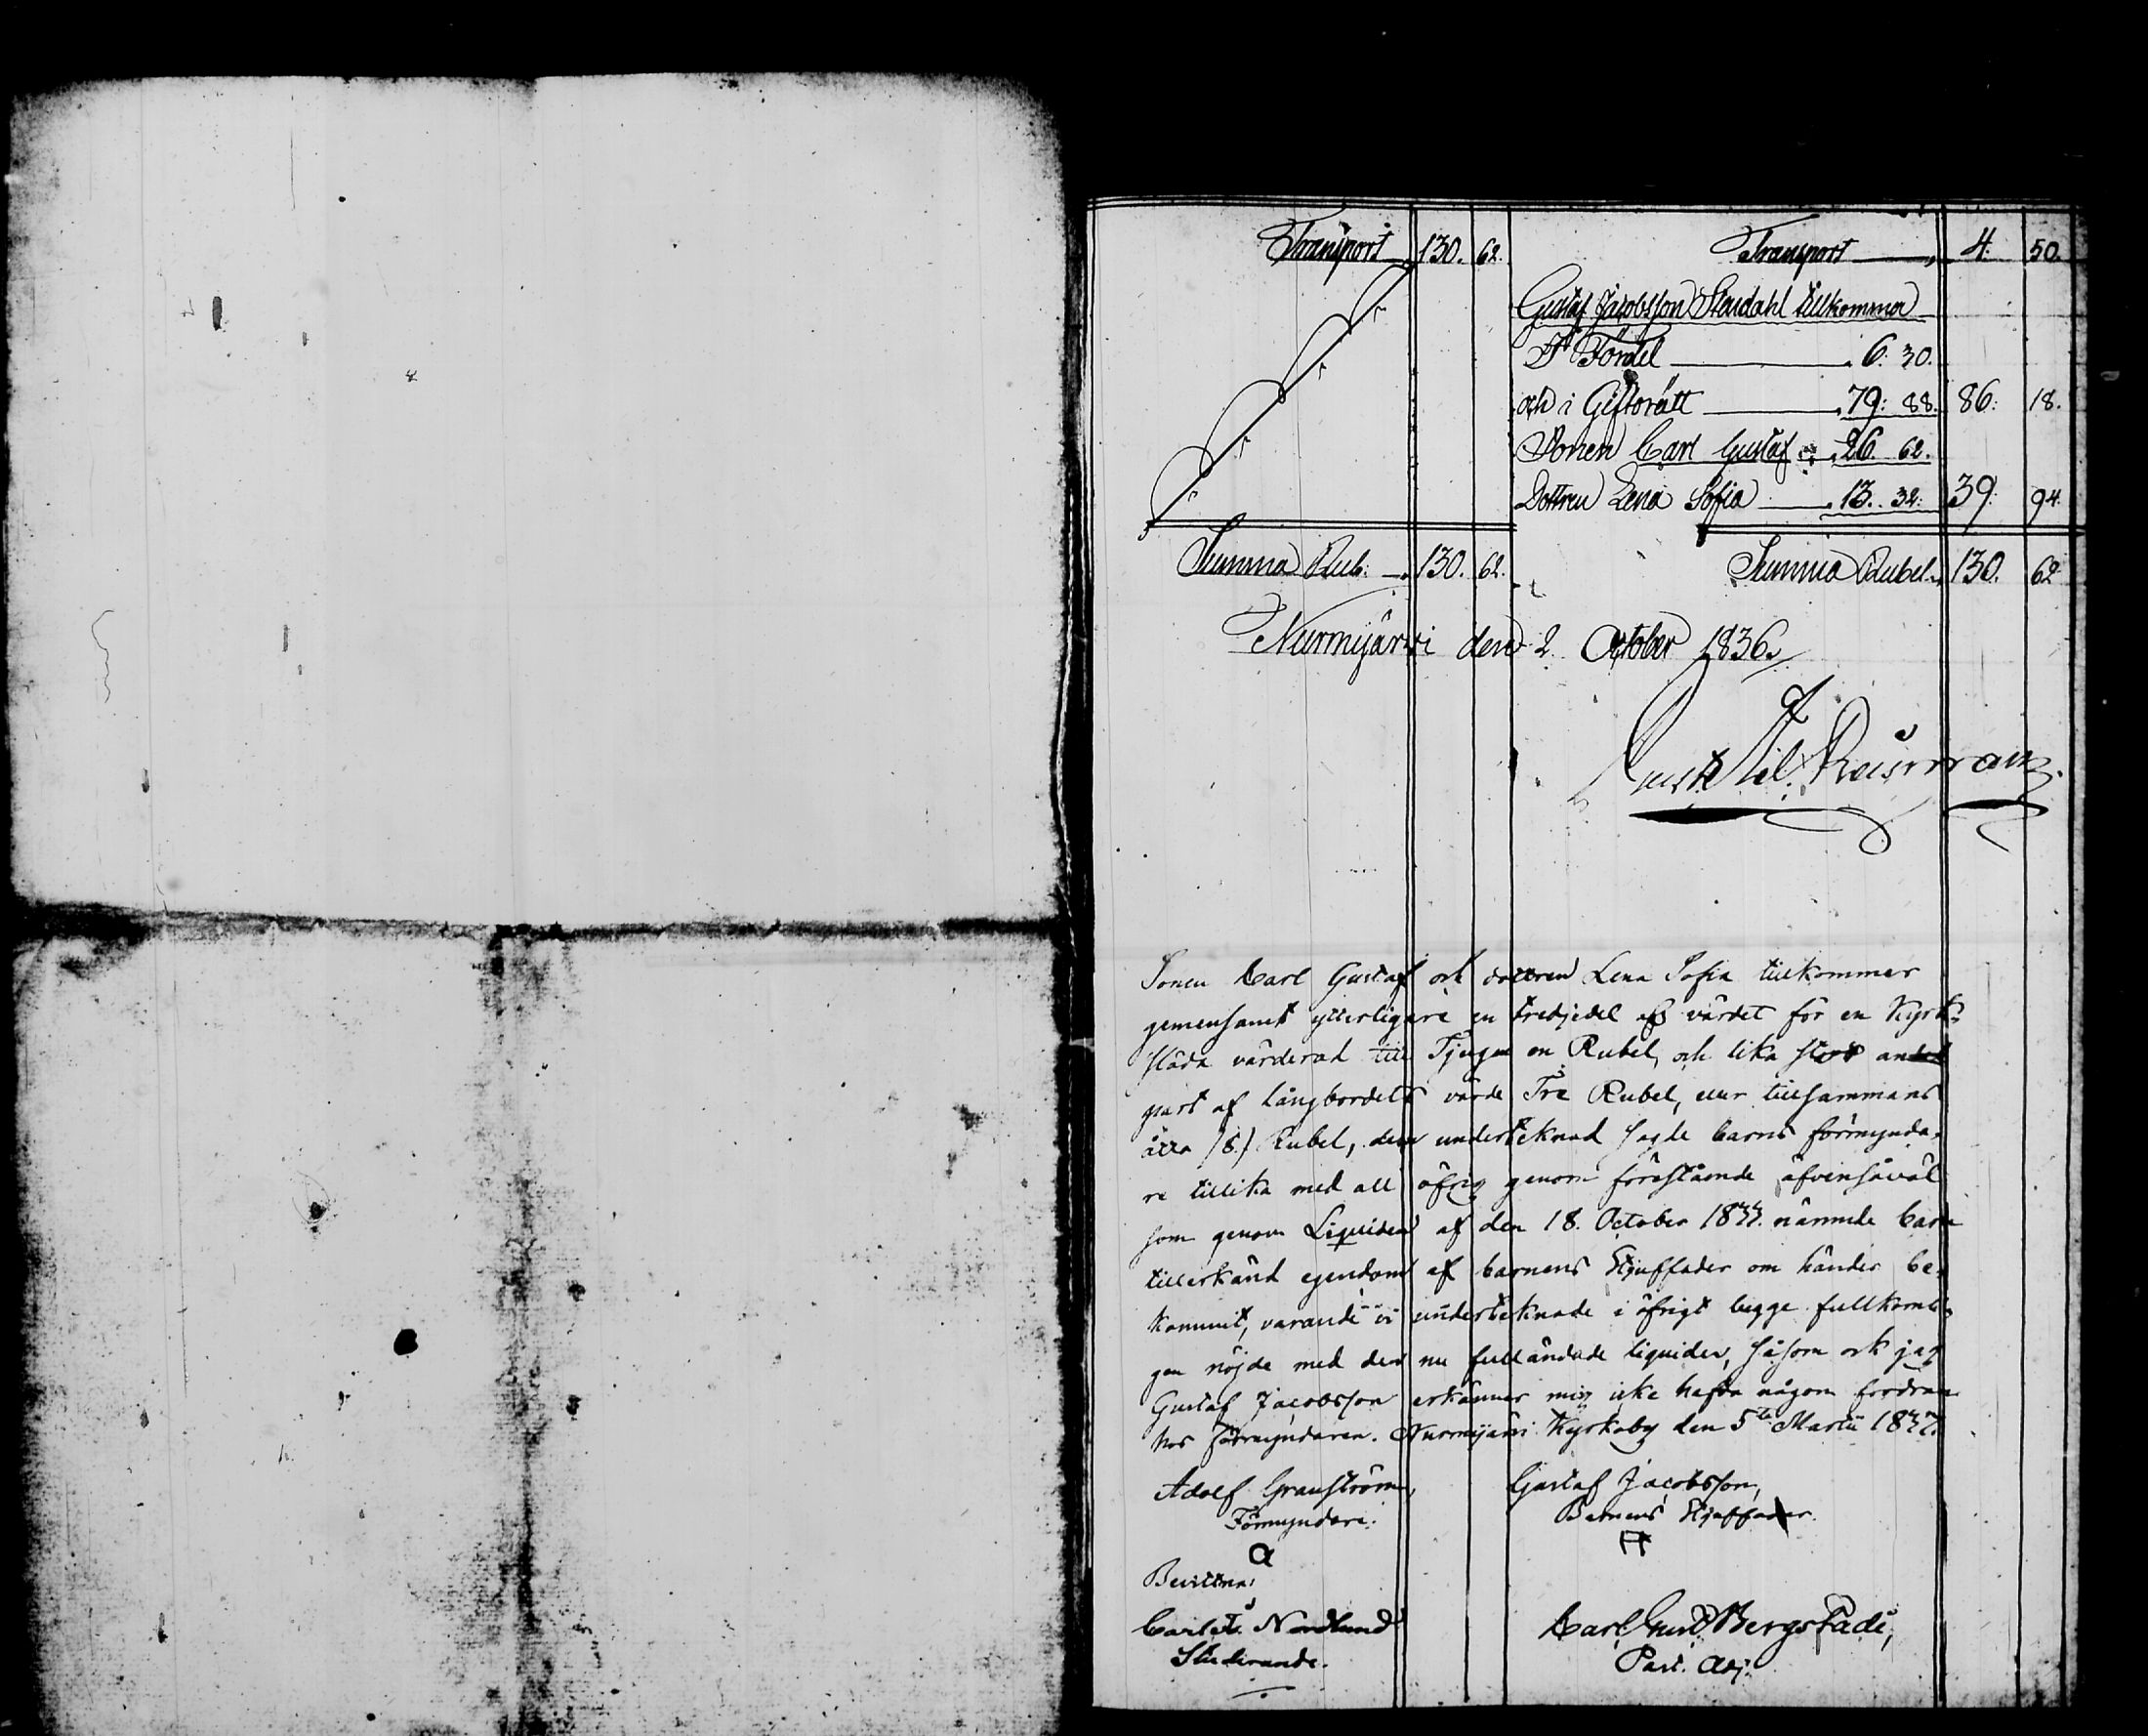 Transport 130. 62.
Transport 4: 50.
Gustaf Jacobsson Stardahl tillkomma
I Fördel 6: 30.
och i Giftorätt 79: 88. 86: 18.
Sonen Carl Gustaf 26. 62.
Dottren Lena Sofia 13. 32: 39: 94.
Summa Rub. 130. 62.
Summa Rubel 130. 62
Nurmijärwi den 2 October 1836.
Sonen Carl Gustaf och dottren Lena Sofia tillkommer
gemensamt ytterligare en tredjedel af värdet för en Kyrk-
släda värderad till Tjugu en Rubel, och lika stor andel
part af Långbordets värde Tre Rubel, eller tillsammans
åtta (8.) Rubel, den undertecknad sagde barns förmynda-
re tillika med all öfrig genom förestående äfvensåväl
som genom Liquiden af den 18. October 1833. nämnde barn
tillerkänd egendom af barnens Stjuffader om händer be-
kommit, varande vi undertecknade i öfrigt begge fullkomli-
gen nöjde med den nu fulländade liquiden, såsom ock jag
Gustaf Jacobsson erkänner mig icke hafva någon fordran
hos Förmyndaren. Nurmijärvi Kyrkoby den 5te Martii 1837.
Adolf Granström, Gustaf Jacobsson,
Förmyndare. Barnens Stjuffader.
Bevittna:
Carl Nordlund Carl Gust. Bergstadi,
Studerande. Past. Adj.